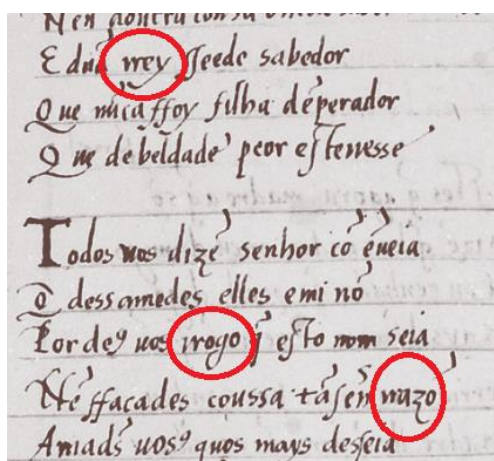 E dũã rrey sseede sabedor
Que nũca ffoy filha dẽperador
Que de beldade peor esteuesse
Todos uos dizẽ senhor cõ ẽueia
Q̃ dessamedes elles e mi nõ
Por deꝯ uos rrogo q̃ esto nom seia
Nẽ ffaçades coussa tã sen rrazõ
Amads uosꝯ quos mays desseia